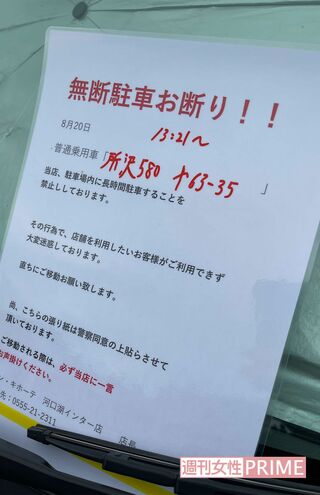 無断駐車お断り！！
8月20日
13:21〜
普通乗用車「所沢580 や63-35 」
当店、駐車場内に長時間駐車することを
禁止ししております。
その行為で、店舗を利用したいお客様がご利用できず
大変迷惑しております。
直ちにご移動お願い致します。
尚、こちらの張り紙は警察同意の上貼らさせて
頂いております。
ご移動される際は、必ず当店に一言
お声掛けください。
ン・キホーテ 河口湖インター店
先：0555-21-2311 店長
週刊女性PRIME